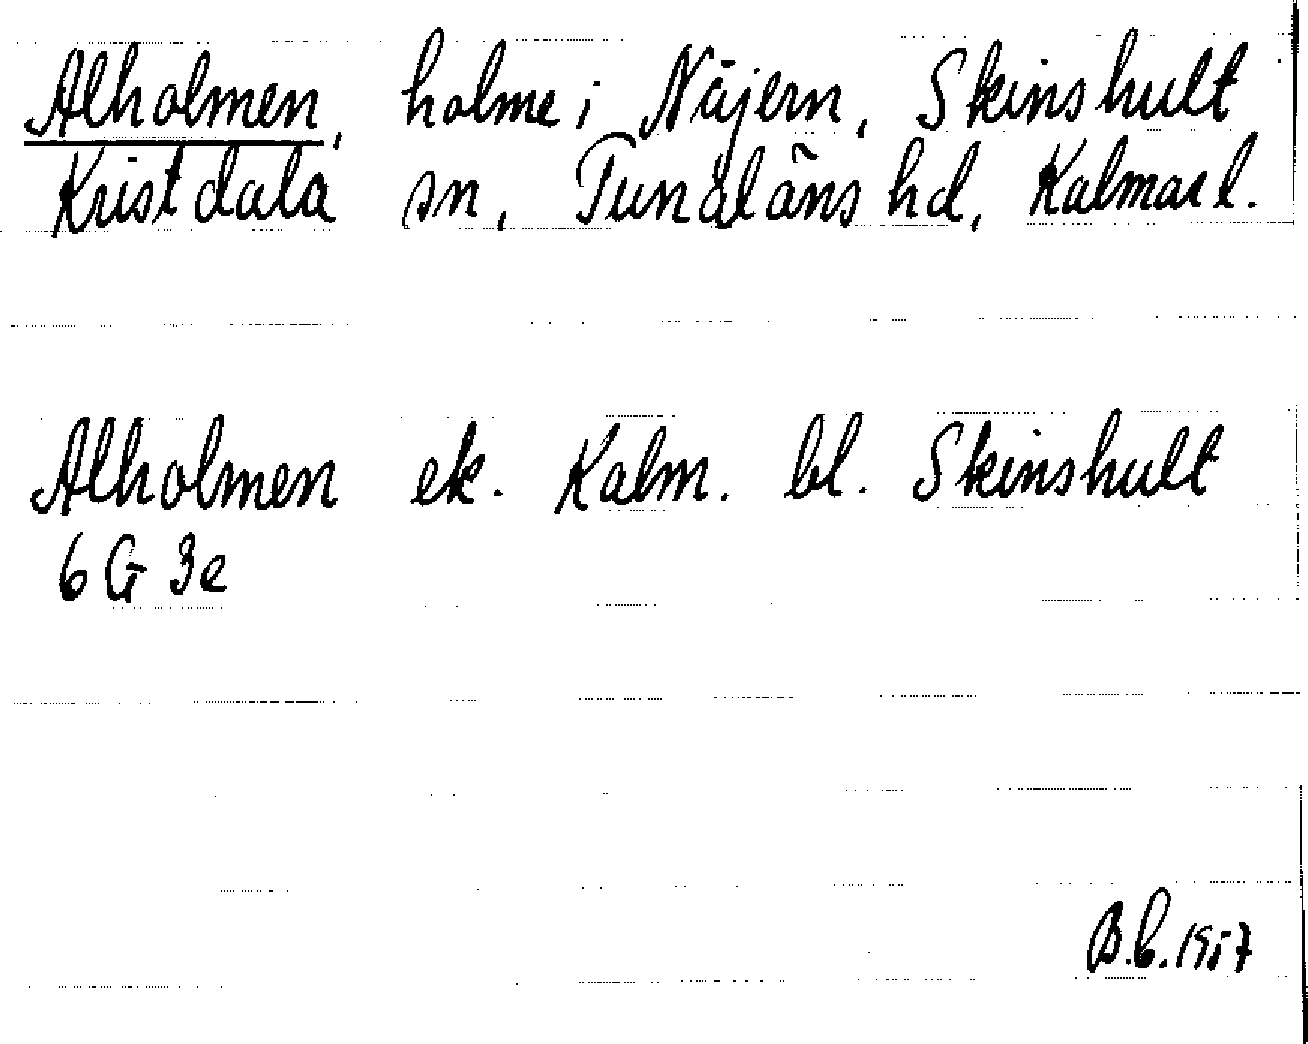 Alholmen, holme i Näjern, Skinshult
Kristdala sn, Tunaläns hd, Kalmar l.
Alholmen ek. Kalm. bl. Skinshult
6 G 3e
B.L. 1957